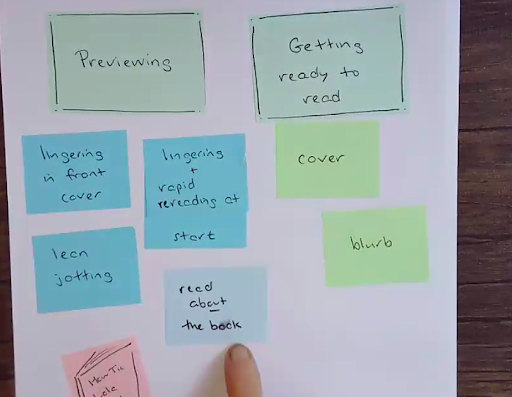 Previewing
Getting
ready to
read
lingering
in front
cover
lingering
+
rapid
rereading at
start
cover
lean
jotting
blurb
read
about
the book
How To